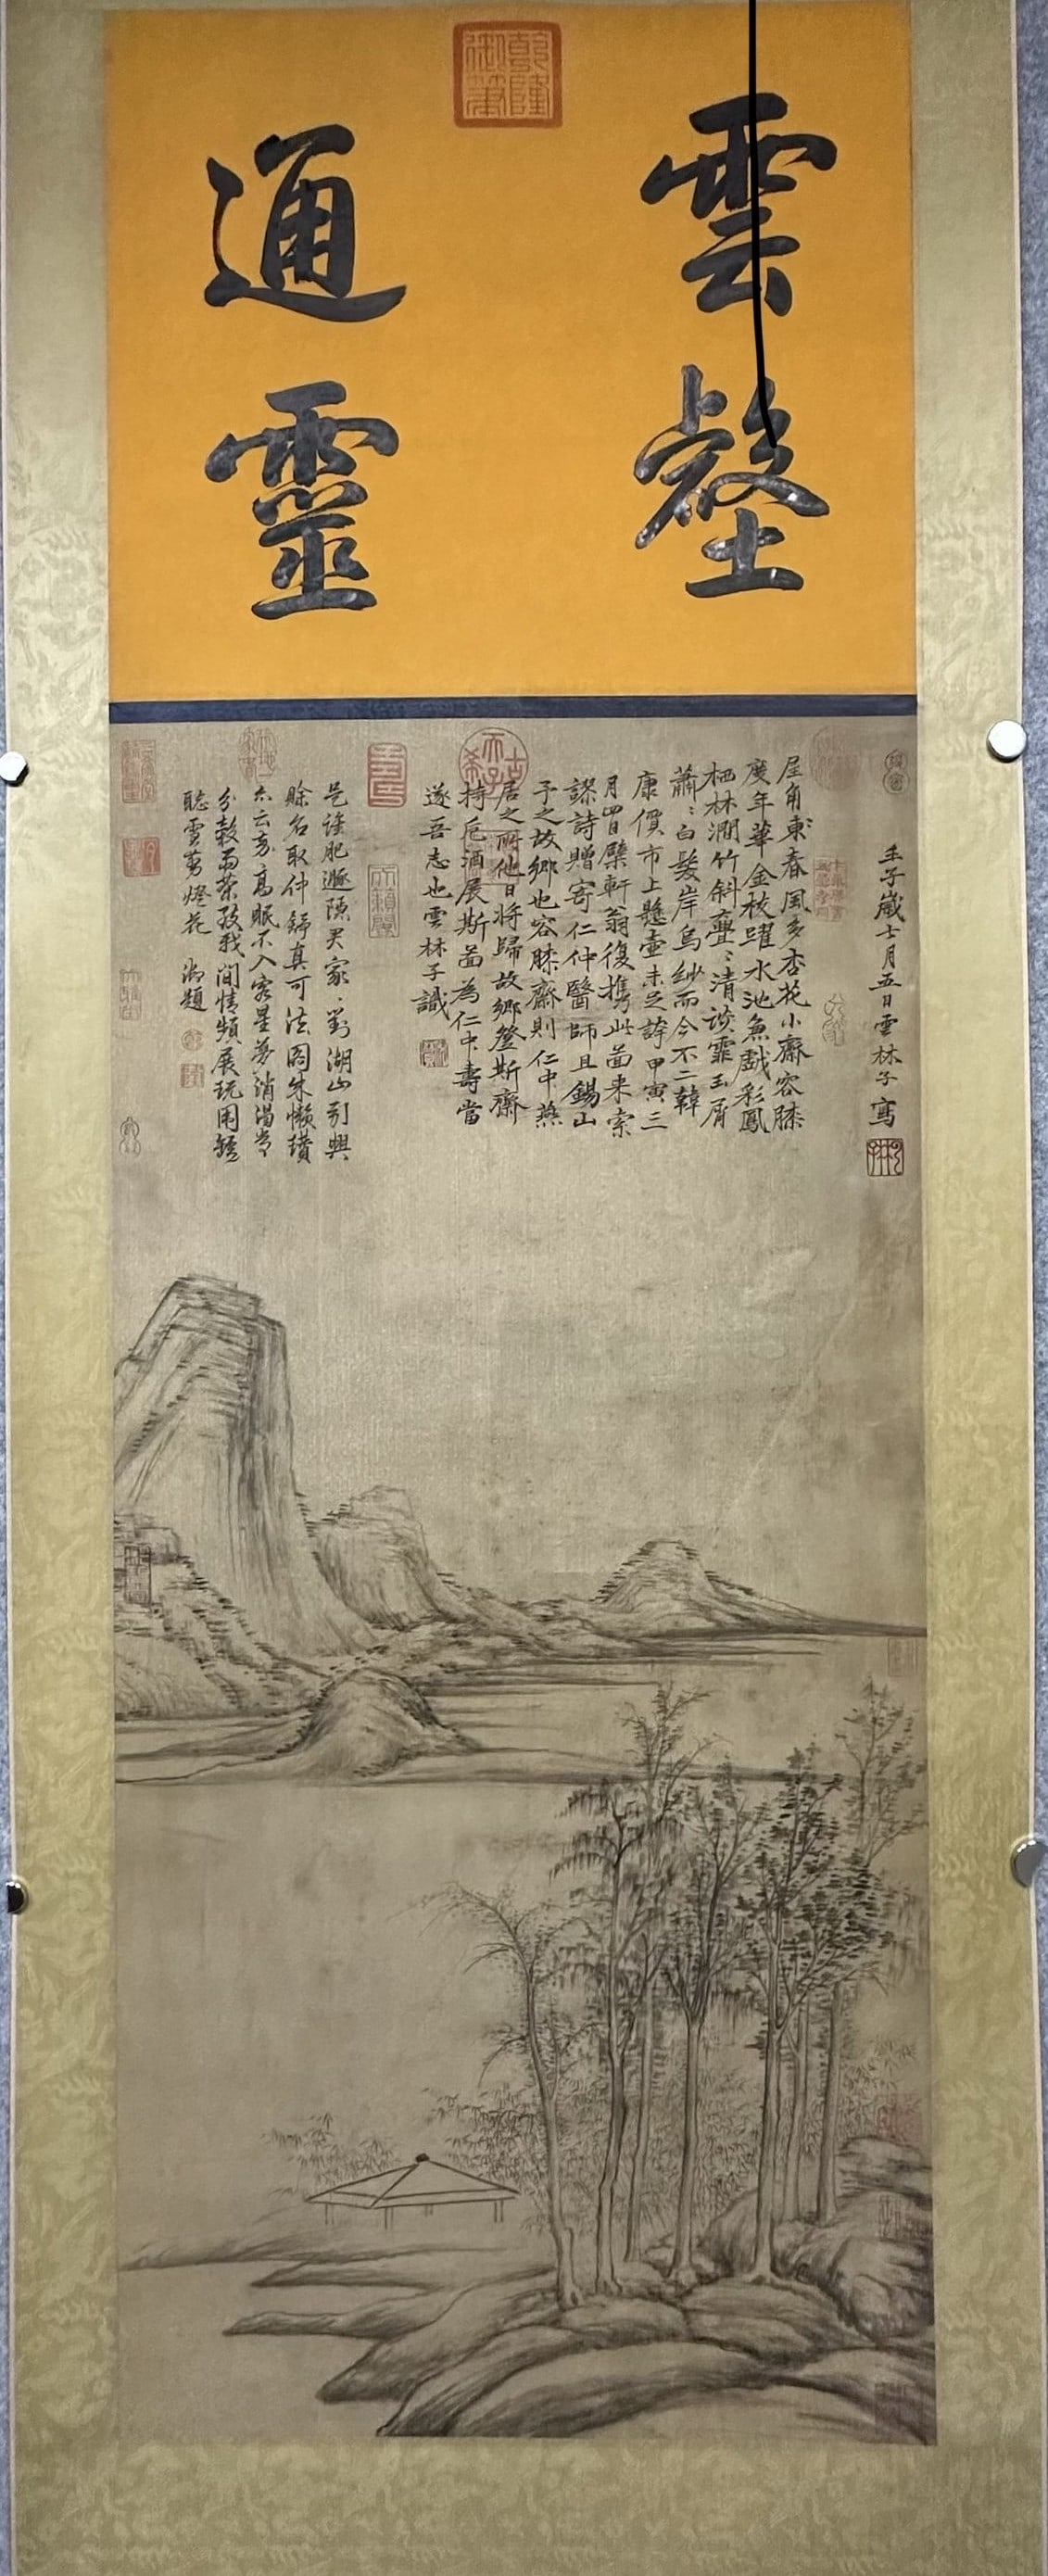 乾隆御筆
雲壑
通靈
壬子歲七月五日雲林子寫
屋角東春風多杏花小齋容膝
度年華金梭躍水池魚戲彩鳳
栖林澗竹斜亹〻清談霏玉屑
蕭〻白髮岸烏紗而今不二韓
康價市上懸壺未足誇甲寅三
月四日檗軒翁復携此圖来索
謬詩贈寄仁仲醫師且錫山
予之故鄉也容膝齋則仁中燕
居之所他日將歸故鄉登斯齋
持卮酒展斯圖為仁中壽當
遂吾志也雲林子識
古希天子
是誰肥遯隩其家對湖山引興
賒名取仲舒真可法圖朱懶瓚
亦云夸高眠不入客星夢消渴常
分穀雨茶致我閒情頻展玩围爐
聽雪剪燈花 御題